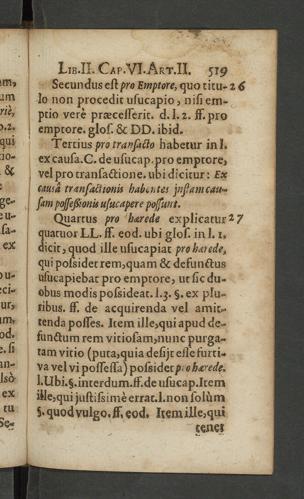 LIB.II. CAP.VI.ART.II. 519
Secundus est pro Emptore, quo titu- 26
lo non procedit usucapio, nisi em-
ptio verè præcesserit. d.l.2. ff. pro
emptore. glos. & DD. ibid.
Tertius pro transacto habetur in l.
ex causa. C. de usucap. pro emptore,
vel pro transactione. ubi dicitur: Ex
causâ transactionis habentes justam cau-
sam possessionis usucapere possunt.
Quartus pro hærede explicatur 27
quatuor LL. ff. eod. ubi glos. in l. 1.
dicit, quod ille usucapiat pro hærede,
qui possidet rem, quam & defunctus
usucapiebat pro emptore, ut sic du-
obus modis possideat. l.3. §. ex plu-
ribus. ff. de acquirenda vel amit-
tenda posses. Item ille, qui apud de-
functum rem vitiosam, nunc purga-
tam vitio (puta, quia desiit esse furti-
va vel vi possessa) possidet pro hærede.
l. Ubi. §. interdum. ff. de usucap. Item
ille, qui justissimè errat. l. non solùm
§. quod vulgo. ff. eod. Item ille, qui
tenet
am,
um
riè,
o.2.
qui
tio-
&
ge-
eu-
sa-
ex
ou-
eci-
ur,
um
od.
e. si
an-
lsò
ex
tu
Se-